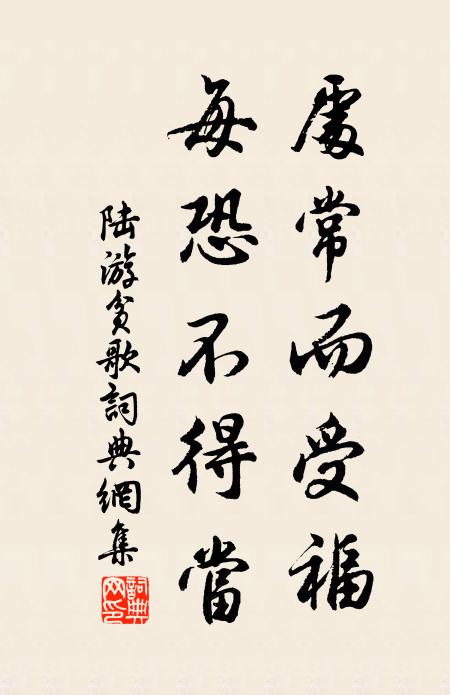 處常而受福
每恐不得當
陸游貧歌詞典網集
詞典網印